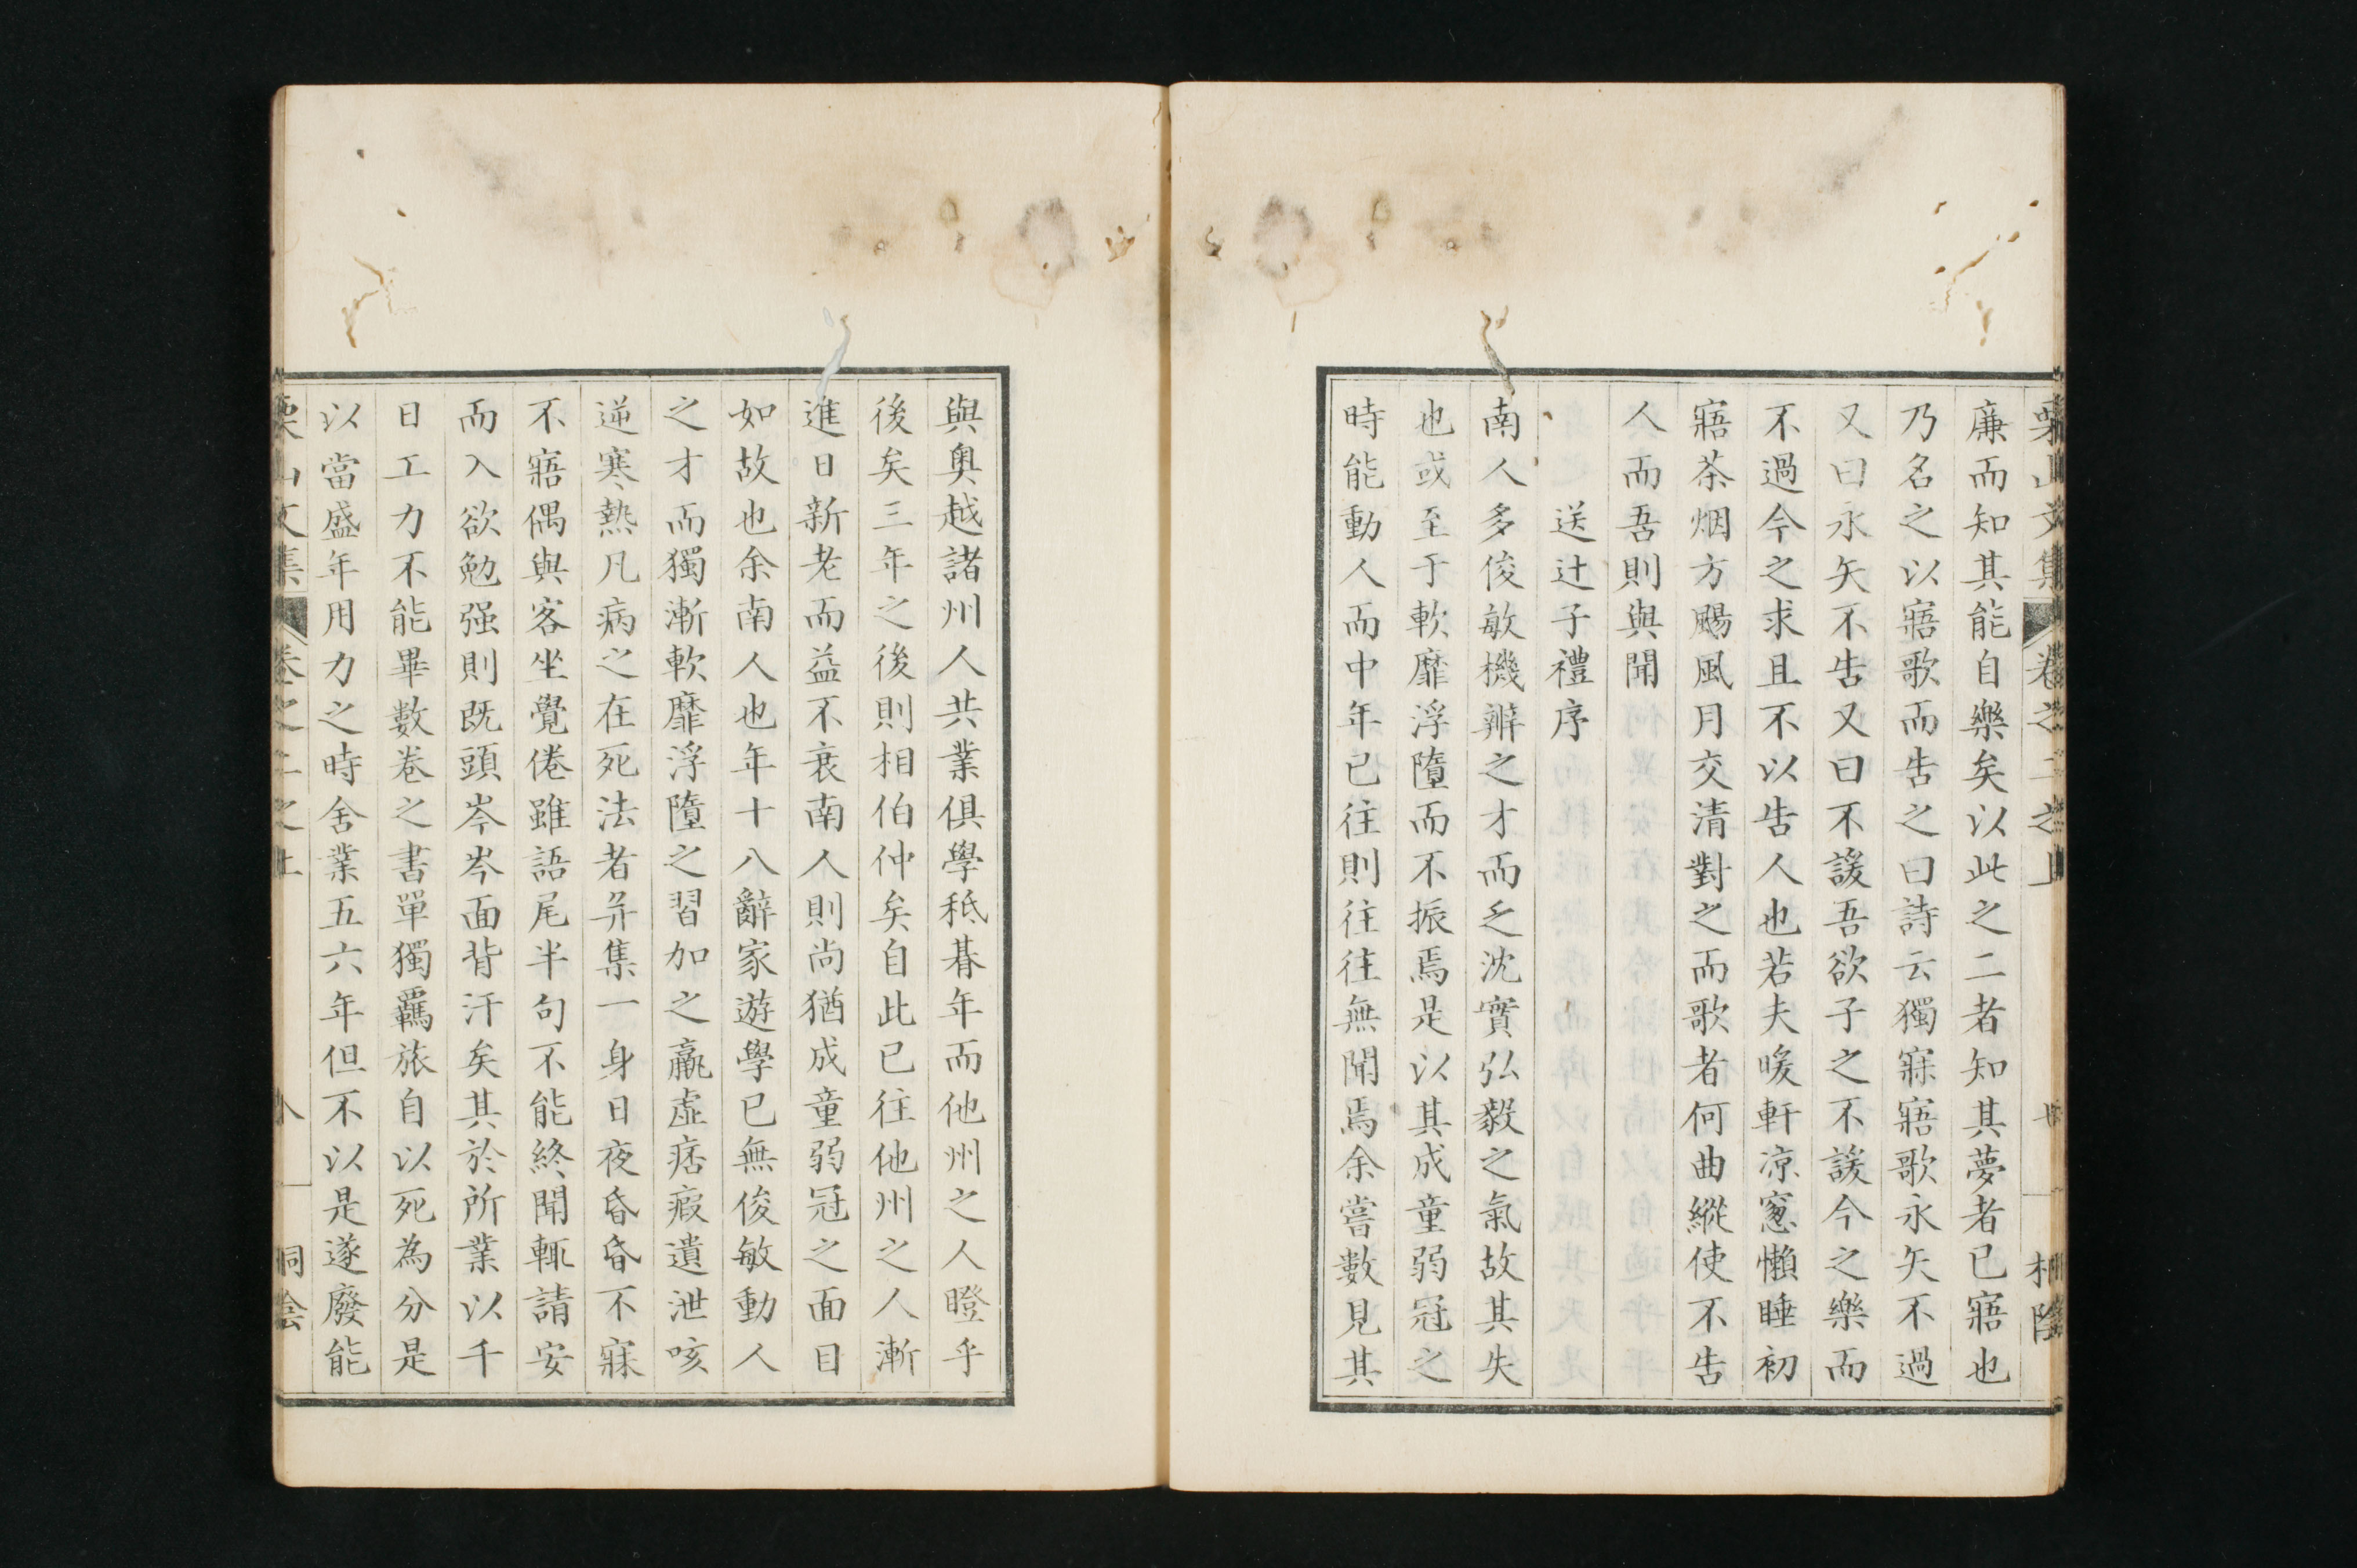 栗山文集 卷之二之上 桐陰
廉而知其能自樂矣以此之二者知其夢者已寤也
乃名之以寤歌而告之曰詩云獨寐寤歌永矢不過
又曰永矢不告又曰不諼吾欲子之不諼今之樂而
不過今之求且不以告人也若夫暖軒凉窻懶睡初
寤茶烟方颺風月交清對之而歌者何曲縱使不告
人而吾則與聞
送辻子禮序
南人多俊敏機辯之才而乏沈實弘毅之氣故其失
也或至于軟靡浮墮而不振焉是以其成童弱冠之
時能動人而中年已往則往往無聞焉余嘗數見其
與奥越諸州人共業俱學秖朞年而他州之人瞪乎
後矣三年之後則相伯仲矣自此已往他州之人漸
進日新老而益不衰南人則尚猶成童弱冠之面目
如故也余南人也年十八辭家遊學已無俊敏動人
之才而獨漸軟靡浮墮之習加之羸虛痞瘕遺泄咳
逆寒熱凡病之在死法者并集一身日夜昏昏不寐
不寤偶與客坐覺倦雖語尾半句不能終聞輒請安
而入欲勉强則既頭岑岑面背汗矣其於所業以千
日工力不能畢數卷之書單獨羈旅自以死為分是
以當盛年用力之時舍業五六年但不以是遂廢能
栗山文集 卷之二之上 八 桐陰